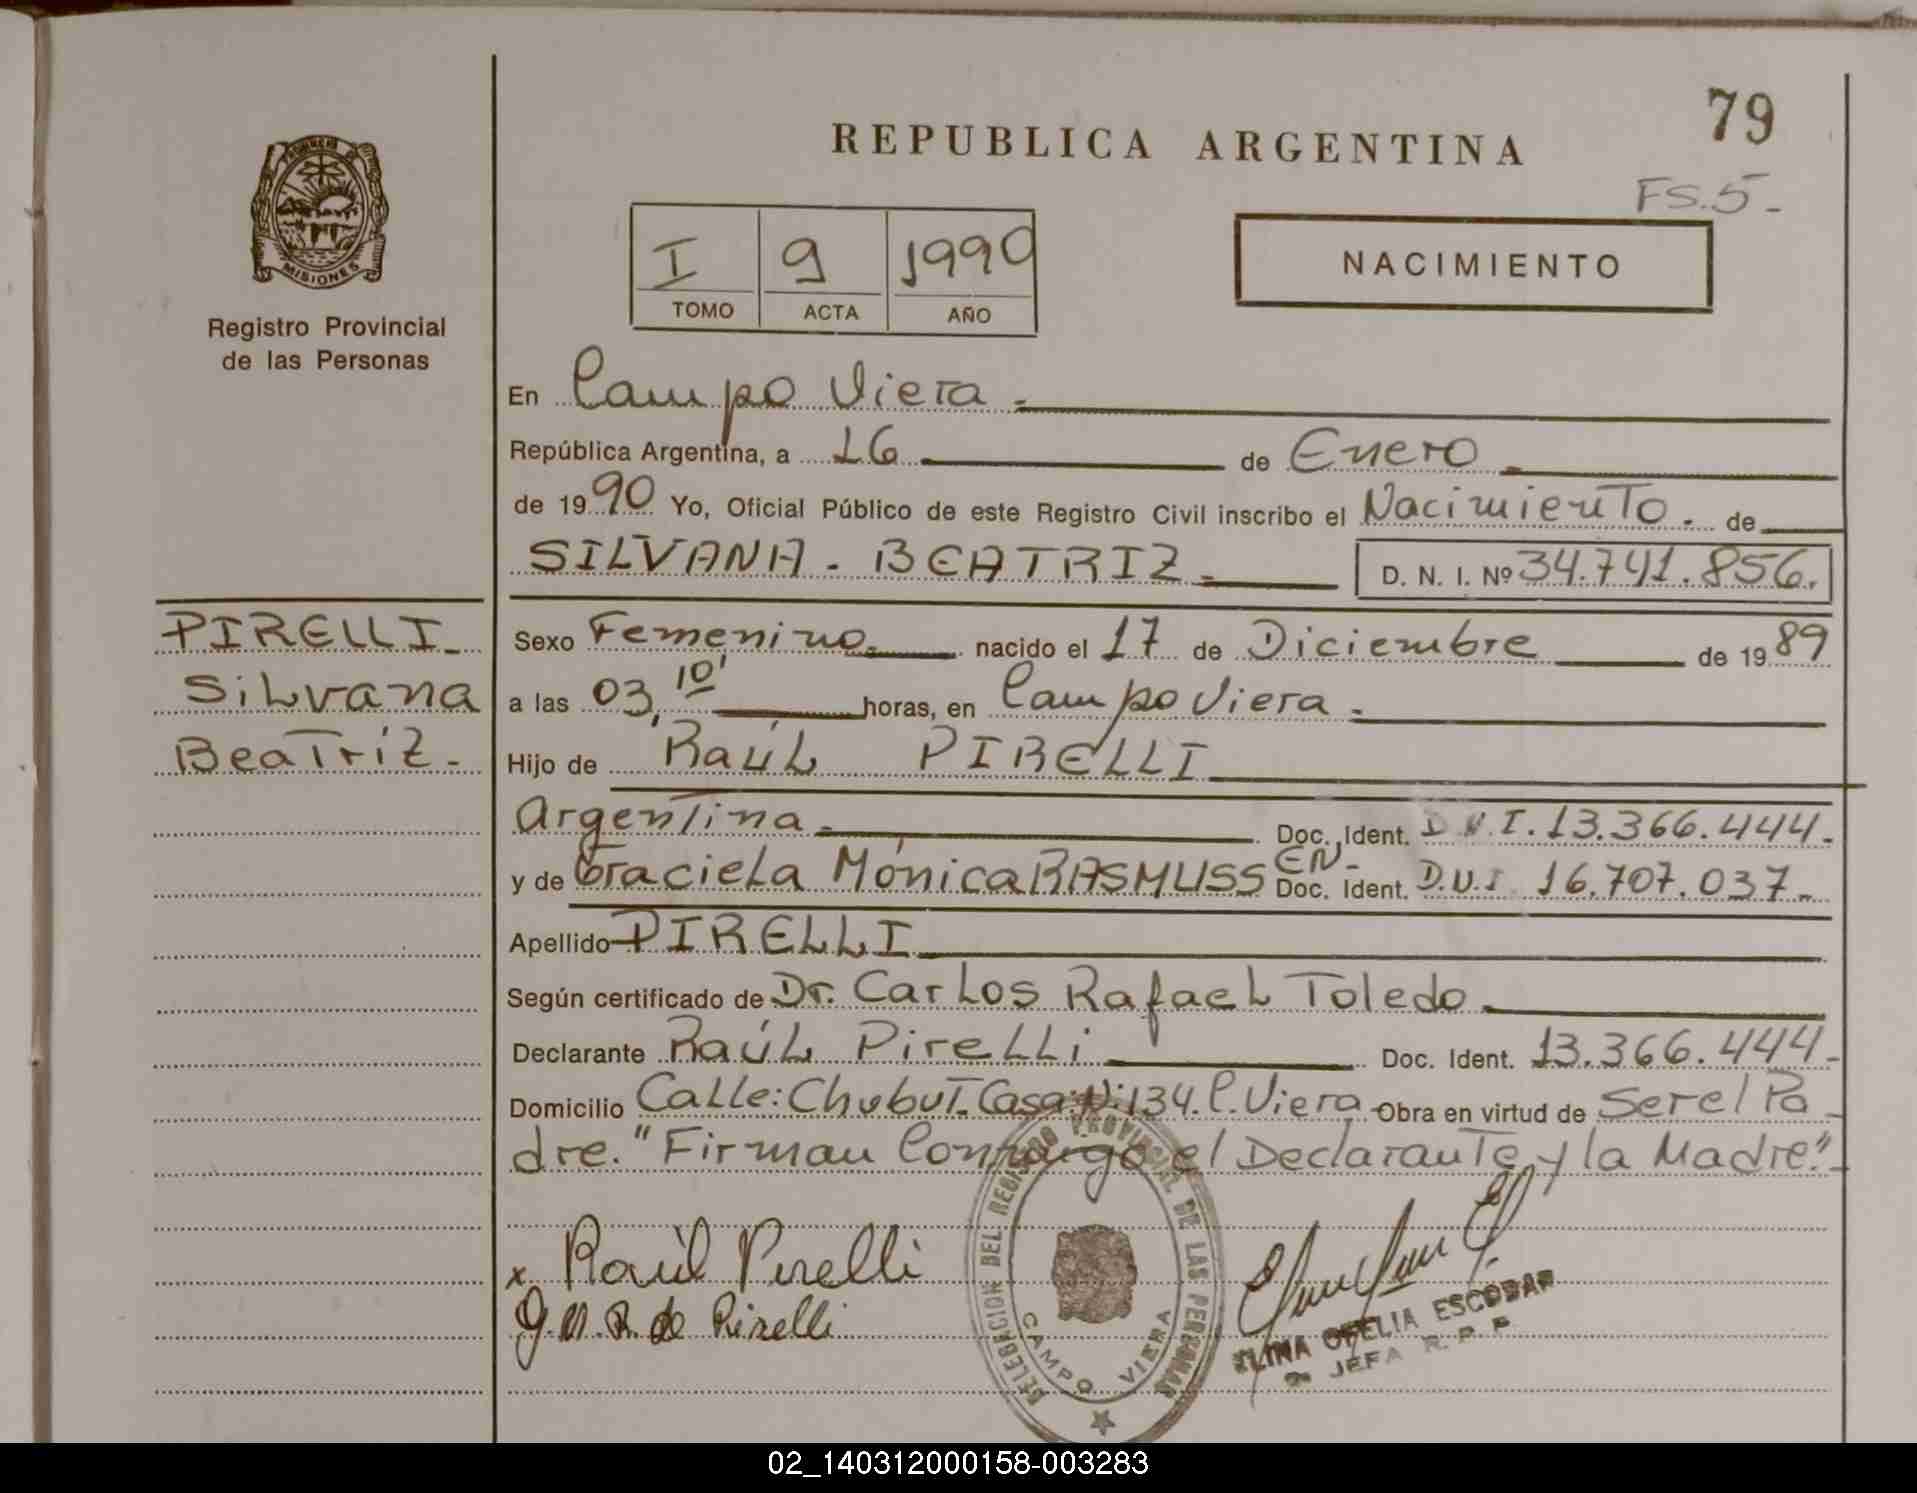 79
REPUBLICA ARGENTINA
FS.5-
PROVINCIA DE
MISIONES
Registro Provincial
de las Personas
I 9 1990
TOMO ACTA AÑO
NACIMIENTO
En Campo Viera.
República Argentina, a 16 de Enero
de 1990 Yo, Oficial Público de este Registro Civil inscribo el Nacimiento. de
SILVANA. BEATRIZ D. N. I. Nº 34.741.856.
PIRELLI
Silvana
Beatriz.
Sexo Femenino. nacido el 17 de Diciembre de 1989
a las 03,10' horas, en Campo Viera.
Hijo de Raúl PIRELLI
Argentina. Doc. Ident. D.N.I. 13.366.444.
y de Graciela Mónica RASMUSSEN- Doc. Ident. D.N.I. 16.707.037.
Apellido PIRELLI
Según certificado de Dr. Carlos Rafael Toledo.
Declarante Raúl Pirelli Doc. Ident. 13.366.444.
Domicilio Calle: Chubut. Casa: Nº: 134. C. Viera Obra en virtud de Ser el Pa
dre. "Firman Conmigo el Declarante y la Madre".
x Raúl Pirelli
G. M. R. de Pirelli
DELEGACION DEL REGISTRO PROVINCIAL DE LAS PERSONAS
CAMPO VIERA
ELINA OFELIA ESCOBAR
JEFA R. P. P.
02_140312000158-003283